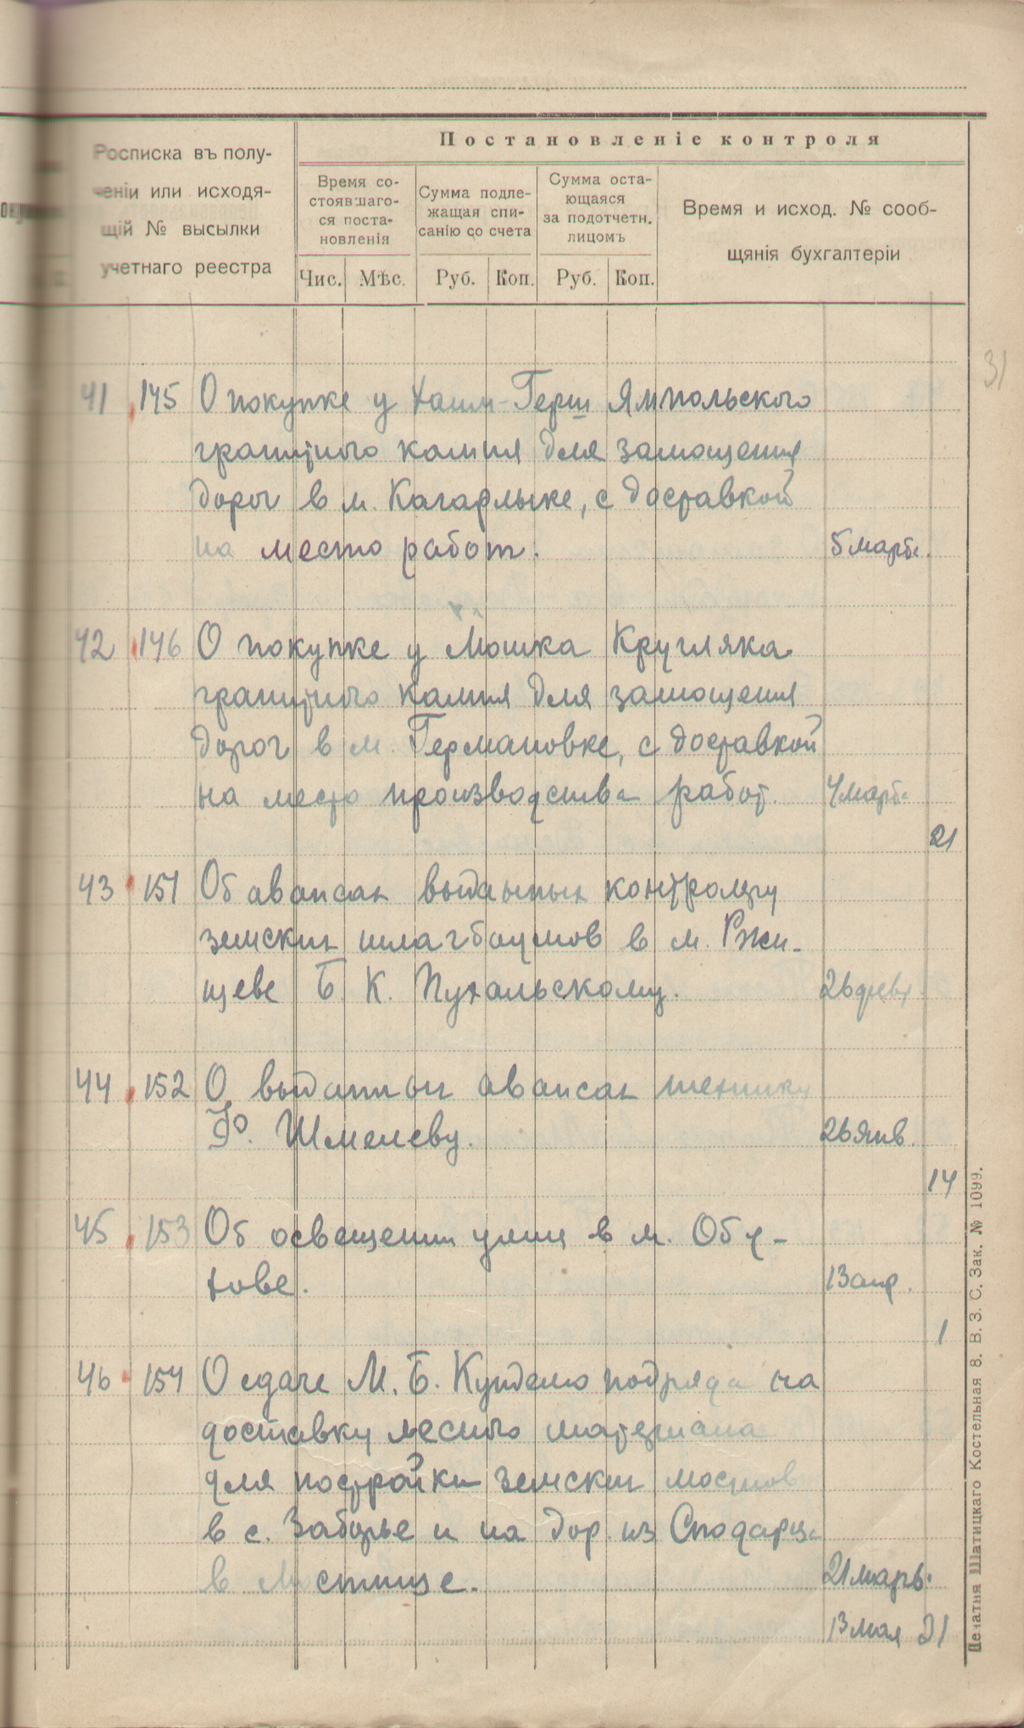 Постановленіе контроля
Росписка въ полу-
ченіи или исходя-
щій № высылки
учетнаго реестра
Время со-
стоявшаго-
ся поста-
новленія
Сумма подле-
жащая спи-
санію со счета
Сумма оста-
ющаяся
за подотчетн.
лицомъ
Время и исход. № сооб-
щянія бухгалтеріи
Чис. Мѣс. Руб. Коп. Руб. Коп.
31
41 145 О покупке у Хаим-Герш Ямпольского
гранитного камня для замощения
дорог в м. Кагарлыке, с доставкой
на место работ. 5 марта
42 146 О покупке у Мошка Кругляка
гранитного камня для замощения
дорог в м. Германовке, с доставкой
на место производства работ. 4 марта
21
43 151 Об авансах выданных контролеру
земских шлагбаумов в м. Ржи-
щеве Б. К. Пухальскому. 26 февр.
44 152 О выданных авансах технику
Ф. Шмелеву. 26 янв.
14
45 153 Об освещении улиц в м. Обу-
хове. 13 апр.
1
46 154 О сдаче М. Б. Кунделю подряда на
доставку лесного материала
для постройки земских мостов
в с. Заборье и на дор. из
в 21 марта
13 мая 21
Печатня Шатицкаго Костельная 8. В. З. С. Зак. № 1099.